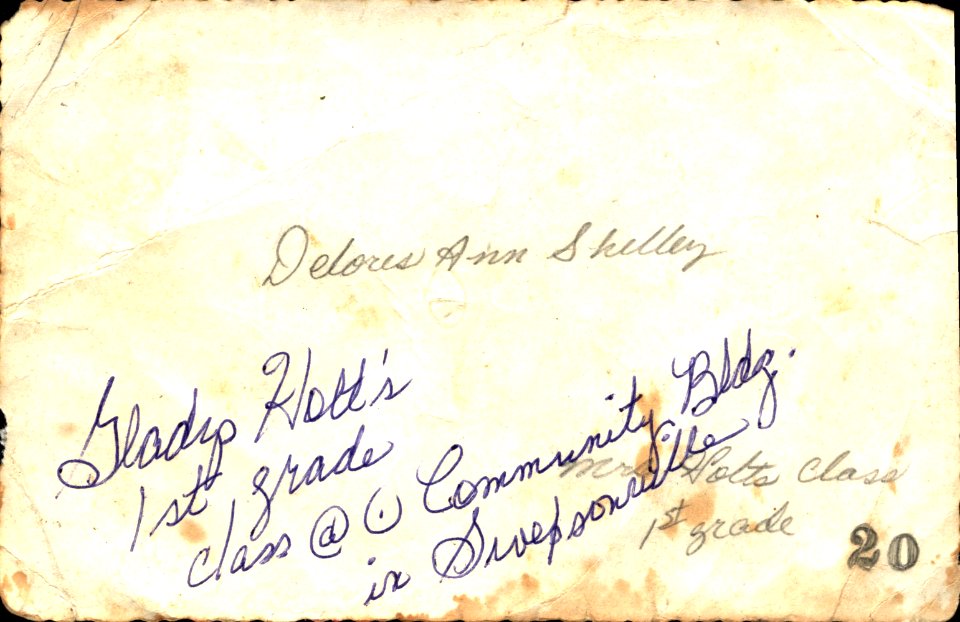 Delores Ann Shelley
Gladys Holt's
1st grade
class @ Community Bldg.
in Swepsonville
Mrs Holts class
1st grade
20